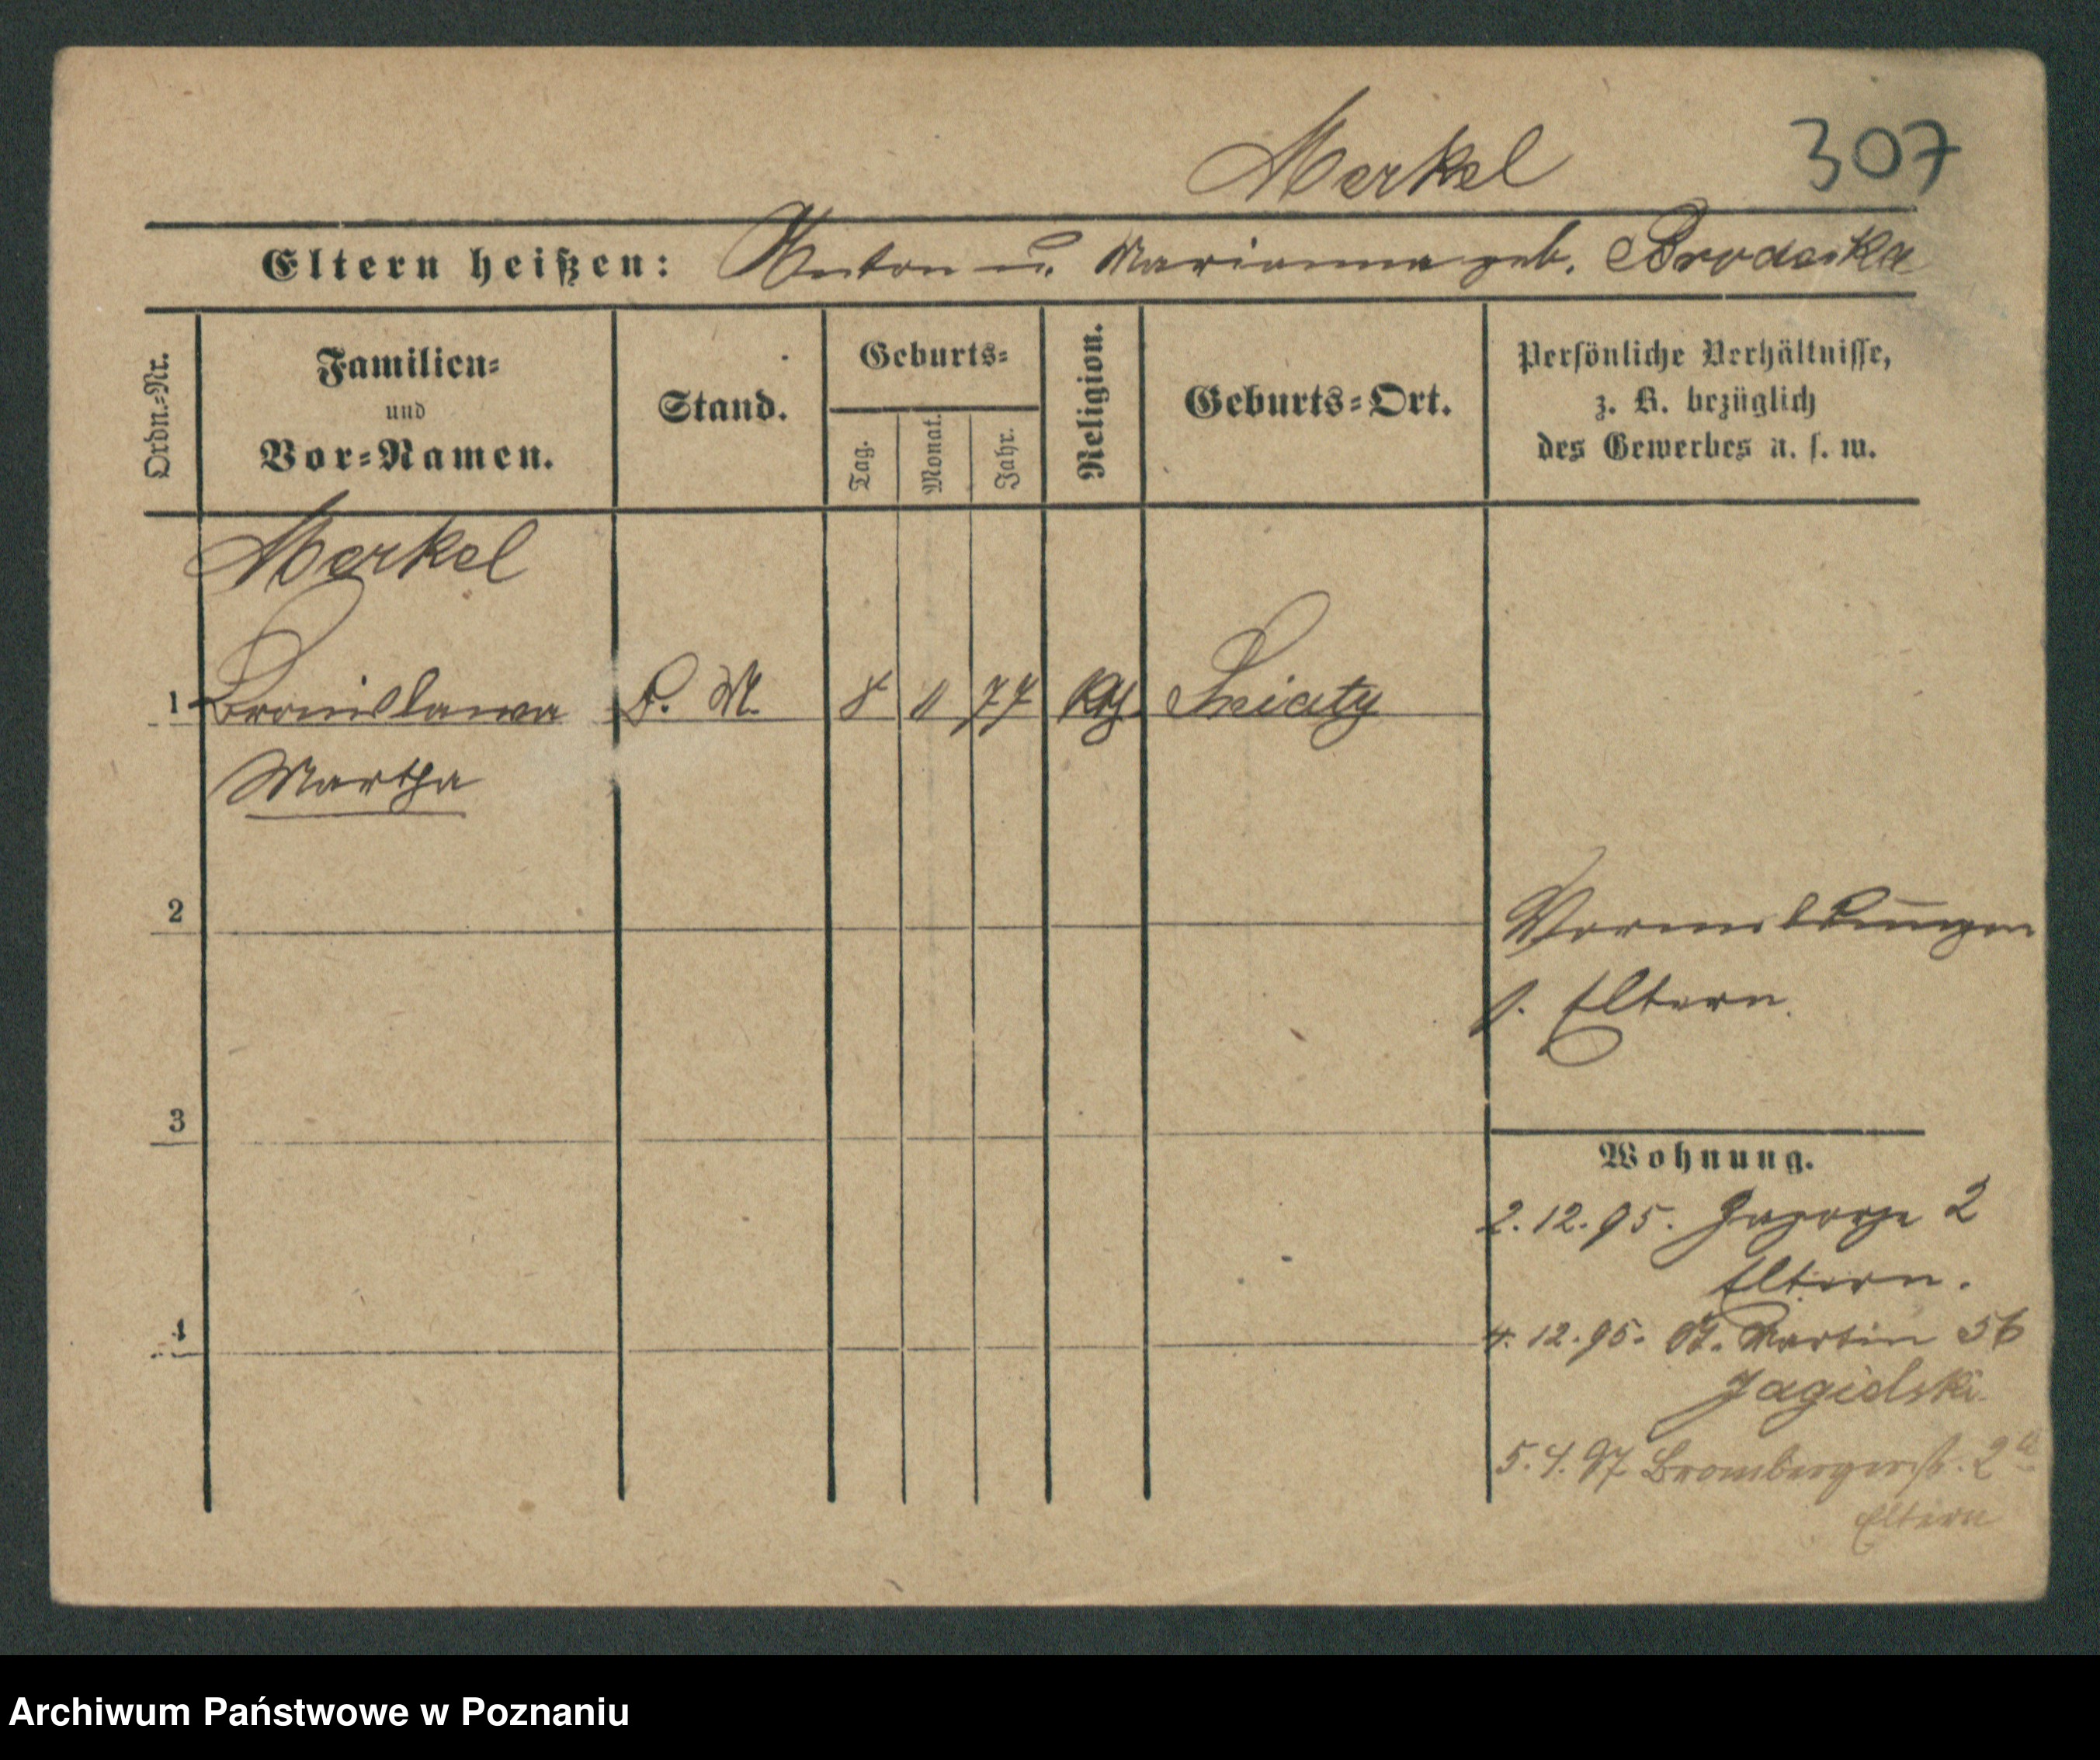 Merkel
307
Eltern heißen: Anton u. Marianna geb. Brodecka
Ordn.-Nr.
Familien-
und
Vor-Namen.
Stand.
Geburts-
Tag.
Monat.
Jahr.
Religion.
Geburts-Ort.
Persönliche Verhältnisse,
z. B. bezüglich
des Gewerbes u. s. w.
Merkel
1 Bronislawa D. M. 8 11 77 kth.
Martha
2
s. Eltern.
3
Wohnung.
2.12.95. 2
Eltern.
4
4.12.95. St. Martin 56
Jagielski
5.4.97 Brombergerstr. 2a
Eltern
Archiwum Państwowe w Poznaniu